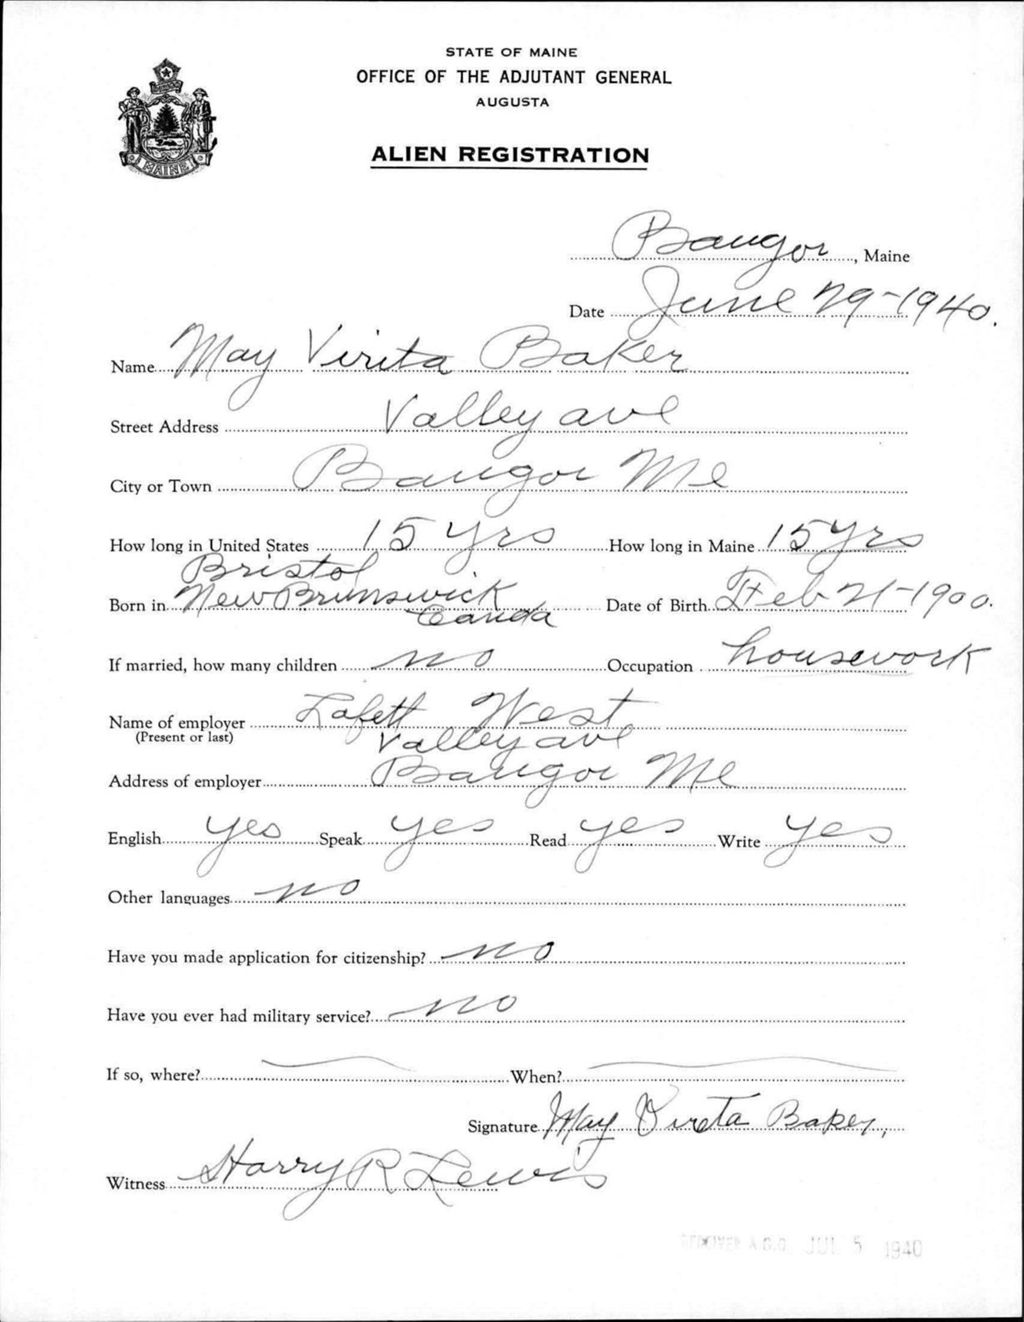 STATE OF MAINE
OFFICE OF THE ADJUTANT GENERAL
AUGUSTA
ALIEN REGISTRATION
MAINE
Bangor, Maine
Date June 29-1940.
Name May Virita Baker
Street Address Valley ave
City or Town Bangor Me
How long in United States 15 yrs How long in Maine 15 yrs
Bristol
Born in New Brunswick Date of Birth Feb 21-1900.
Canda
If married, how many children no Occupation housework
Name of employer Lafett West
(Present or last) Valley ave
Address of employer Bangor Me
English yes Speak yes Read yes Write yes
Other languages no
Have you made application for citizenship? no
Have you ever had military service? no
If so, where? When?
Signature May Vireta Baker,
Witness Harry R Lewis
RECEIVED A.G.O. JUL 5 1940